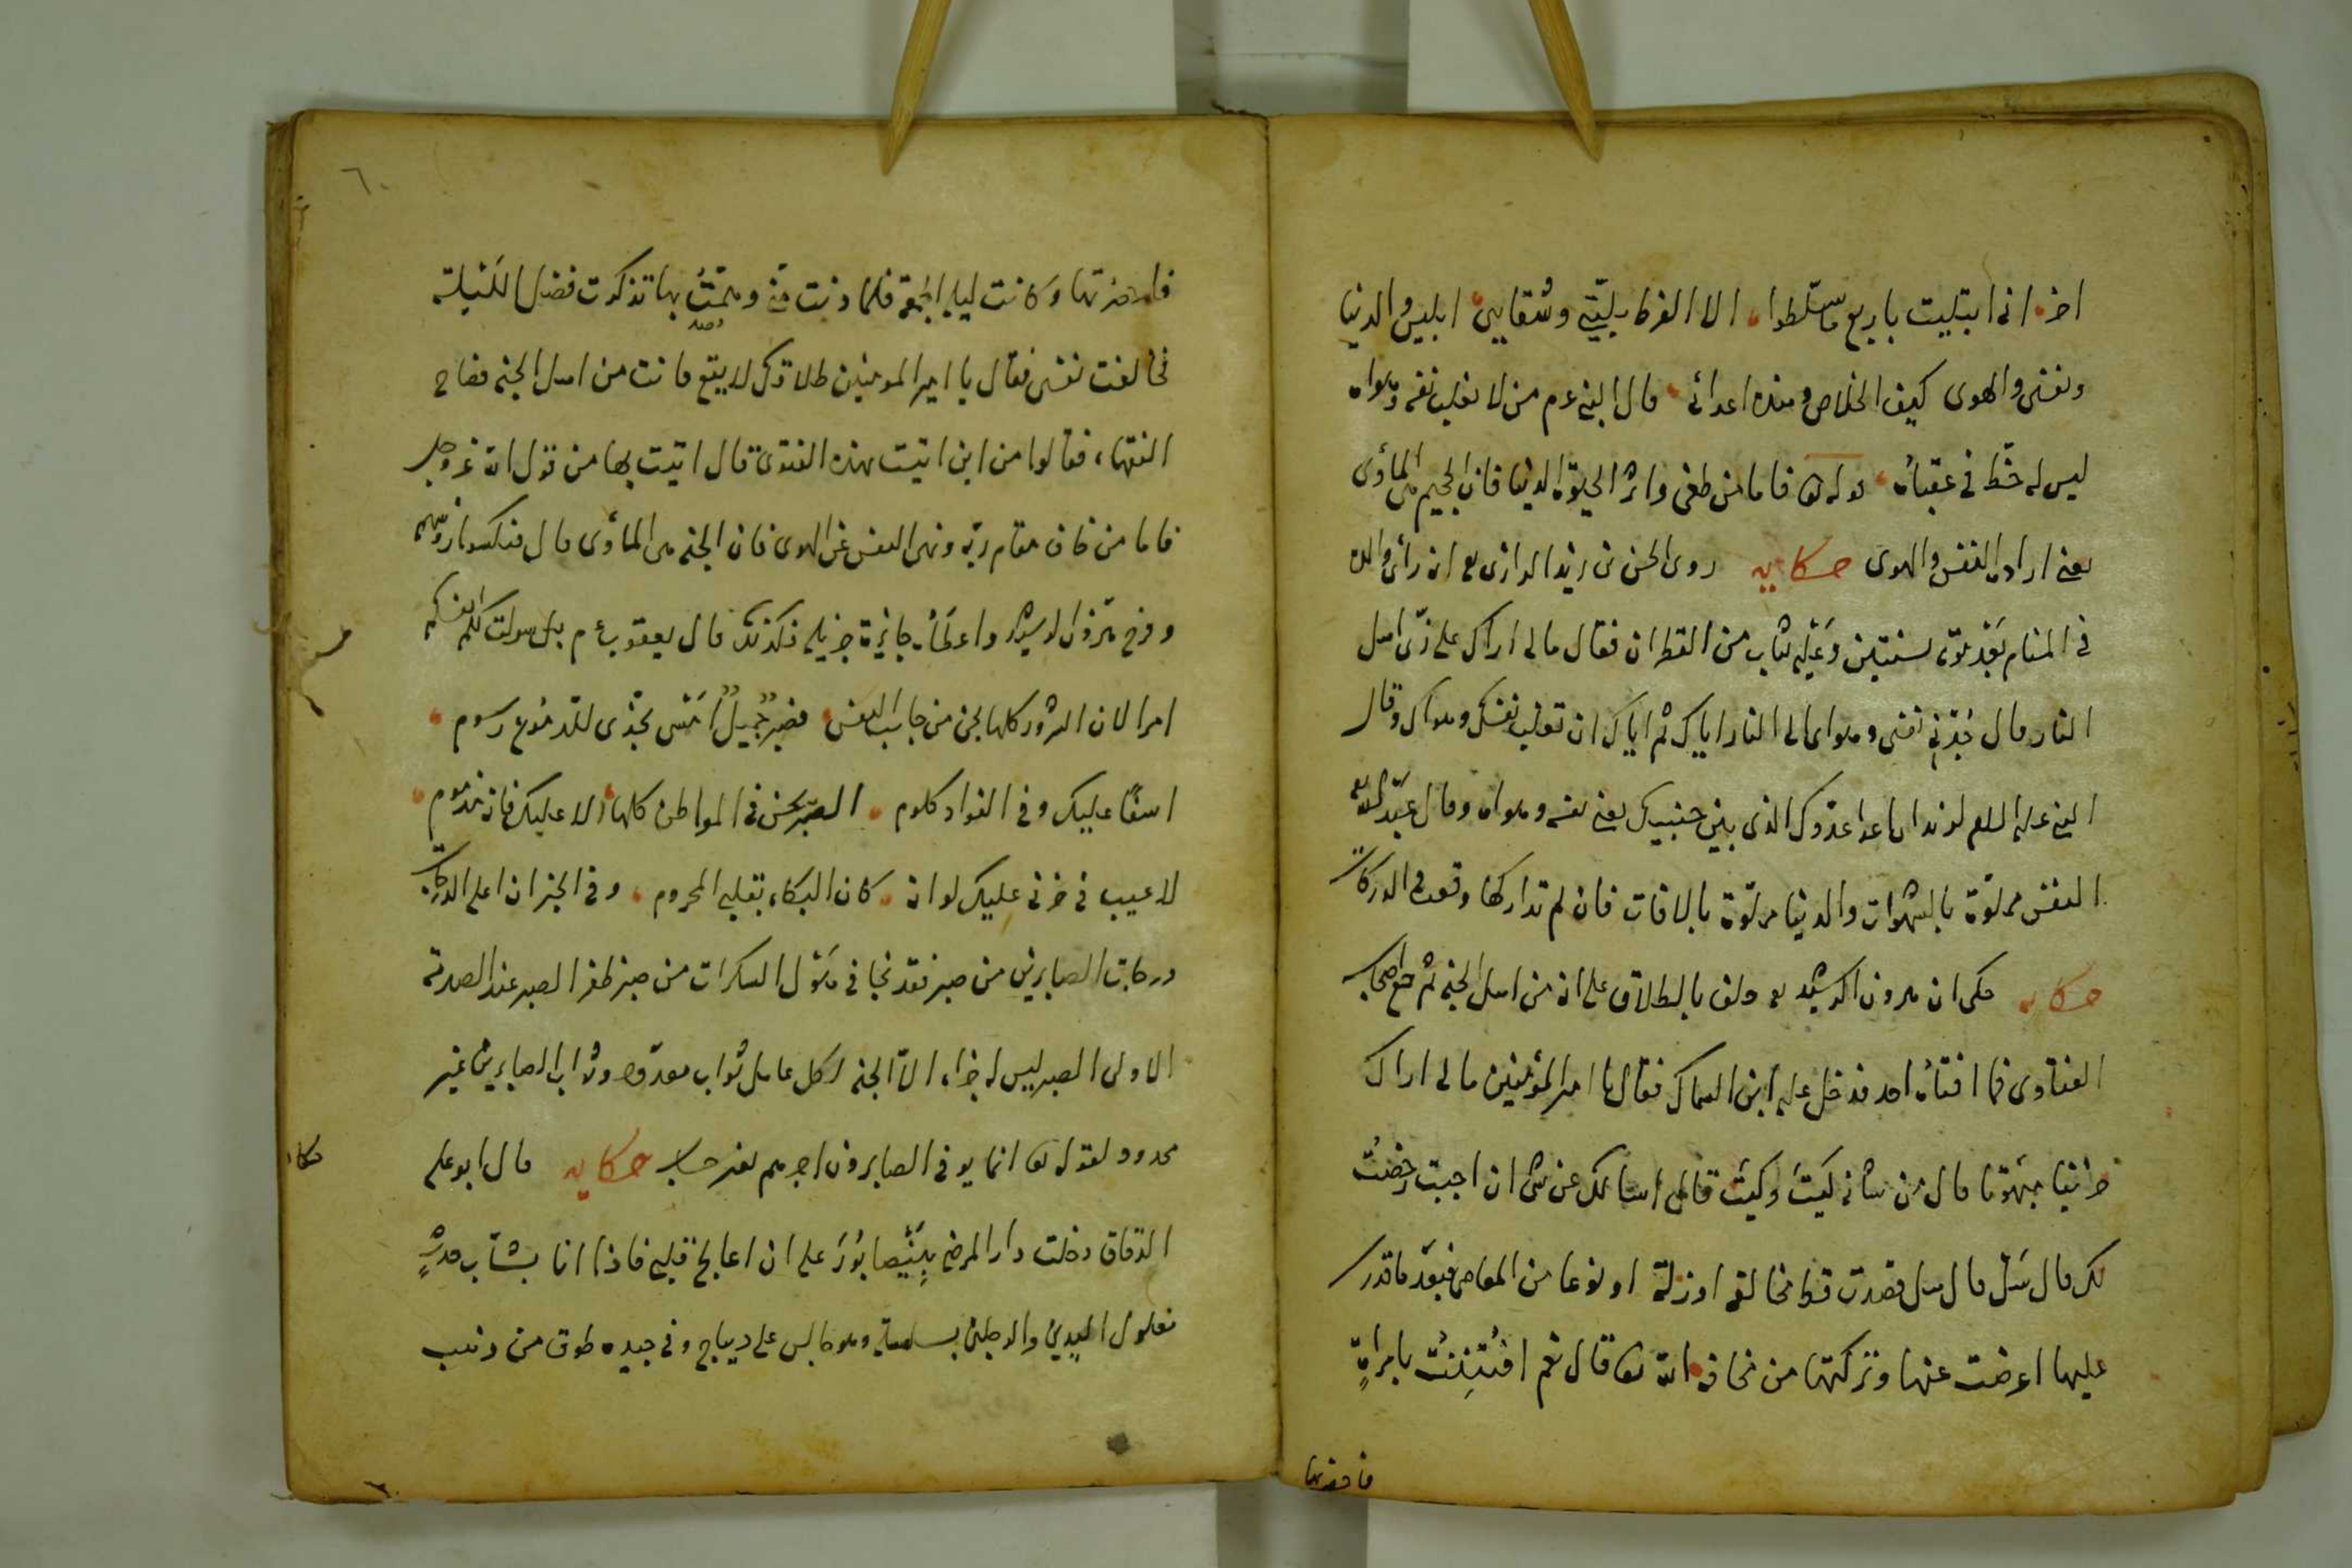 اخر انى ابتليت باربع ما سلطوا الا لفرط بليتى وشقايى ابليس والدنيا
ونفسى والهوى كيف الخلاص وهذه اعدائى قال النبى عم من لا يغلب نفسه وهواه
ليس له حظ فى عقباه قوله تعا فاما من طغى واثر الحيوة الدنيا فان الجحيم هى المأوى
يعنى اراد النفس والهوى حكايه روى الحسن بن زيد الرازى انه رأى والده
فى المنام بعد موته بسنتين وعليه ثياب من القطران فقال مالى اراك على زى اهل
النار قال نفسى وهواى الى النار اياك ثم اياك ان تغلب نفسك وهواك وقال
النبى عليه السلم اعدا عدوك الذى بين جنبيك يعنى نفسه وهواه وقال
النفس مملوة بالشهوات والدنيا مملوة بالافات فان لم تداركها وقعت فى الدركات
حكايه حكى ان هرون الرشيد حلف بالطلاق على انه من اهل الجنه ثم جمع اصحاب
الفتاوى فما افتاه احد فدخل عليه ابن السماك فقال يا امير المؤمنين مالى اراك
حزينا مبهوتا قال من شانه كيت وكيت قال اسالك عن شى ان اجبت رخصت
لك قال سل قال هل قصدت قط مخالفة او زلة او نوعا من المعاصى فبعد ما قدرت
عليها اعرضت عنها وتركتها من مخافة الله تعا قال نعم افتتنت بامراة
فاحضرتها
٦٠
فاحضرتها وكانت ليلة الجمعة فلما دنت منى وهممت بها تذكرت فضل الليلة
فخالفت نفسى فقال يا امير المومنين طلاقك لا يقع فانت من اهل الجنه فصاح
الفقهاء فقالوا من اين اتيت بهذه الفتوى قال اتيت بها من قول الله عز وجل
فاما من خاف مقام ربه ونهى النفس عن الهوى فان الجنه هى المأوى قال فنكسوا رؤسهم
وفرح هرون الرشيد واعطاه جائزة جزيله فكذلك قال يعقوب عم بل سولت لكم انفسكم
امرا لان الشرور كلها تجئ من جانب النفس فصبر جميل امسى بخدى للدموع رسوم
اسفا عليك وفى الفواد كلوم الصبر يحسن فى المواطن كلها الا عليك فانه مذموم
لا عيب فى حزنى عليك لو انه كان البكاء بقلبى المحروم وفى الخبر ان اعلى الدرجات
درجات الصابرين من صبر فقد نجا فى هول السكرات من صبر ظفر الصبر عند الصدمة
الاولى الصبر ليس له جزاء الا الجنه لكل عامل ثواب معدود وثواب الصابرين غير
محدود لقوله تعا انما يوفى الصابرون اجرهم بغير حساب حكايه قال ابو على
حكا
الدقاق دخلت دار المرضى بنيصابور على ان اعالج قلبى فاذا انا بشاب حدث
مغلول اليدين والرجلين بسلسلة وهو جالس على ديباج وفى جيده طوق من ذهب